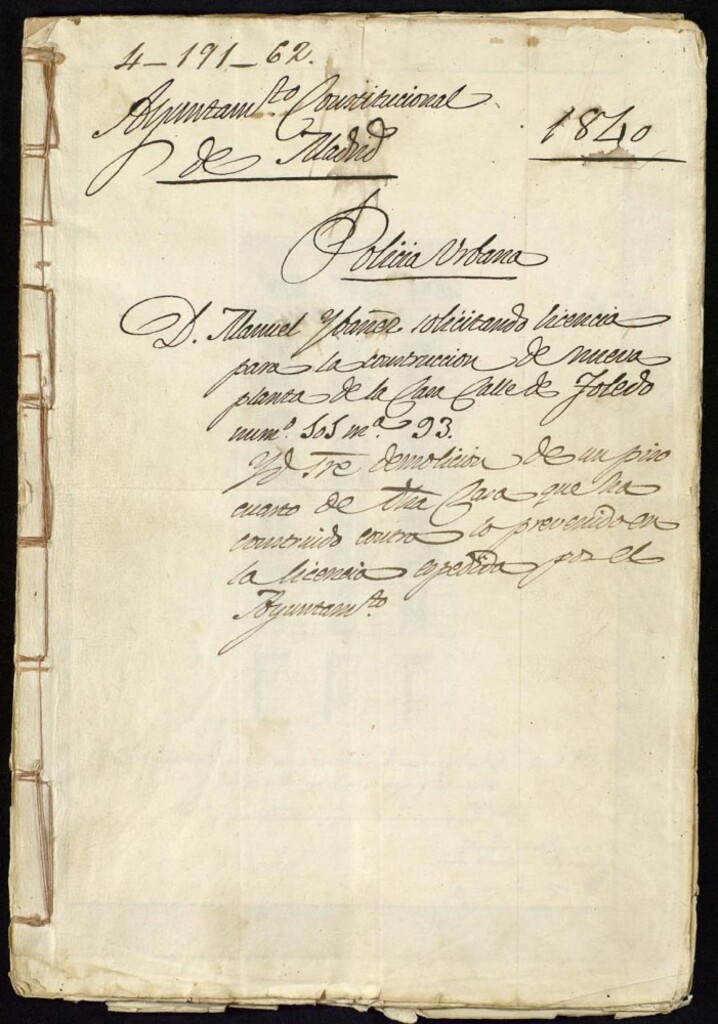 4-191-62.
Ayuntamto Constitucional
de Madrid
1840
Policia Urbana
D. Manuel Ybañez solicitando licencia
para la construccion de nueva
planta de la Casa Calle de Toledo
numo. 505 ma. 93.
Yd Sre demolicion de un piso
cuarto de dha Casa que ha
construido contra lo prevenido en
la licencia espedida por el
Ayuntamto